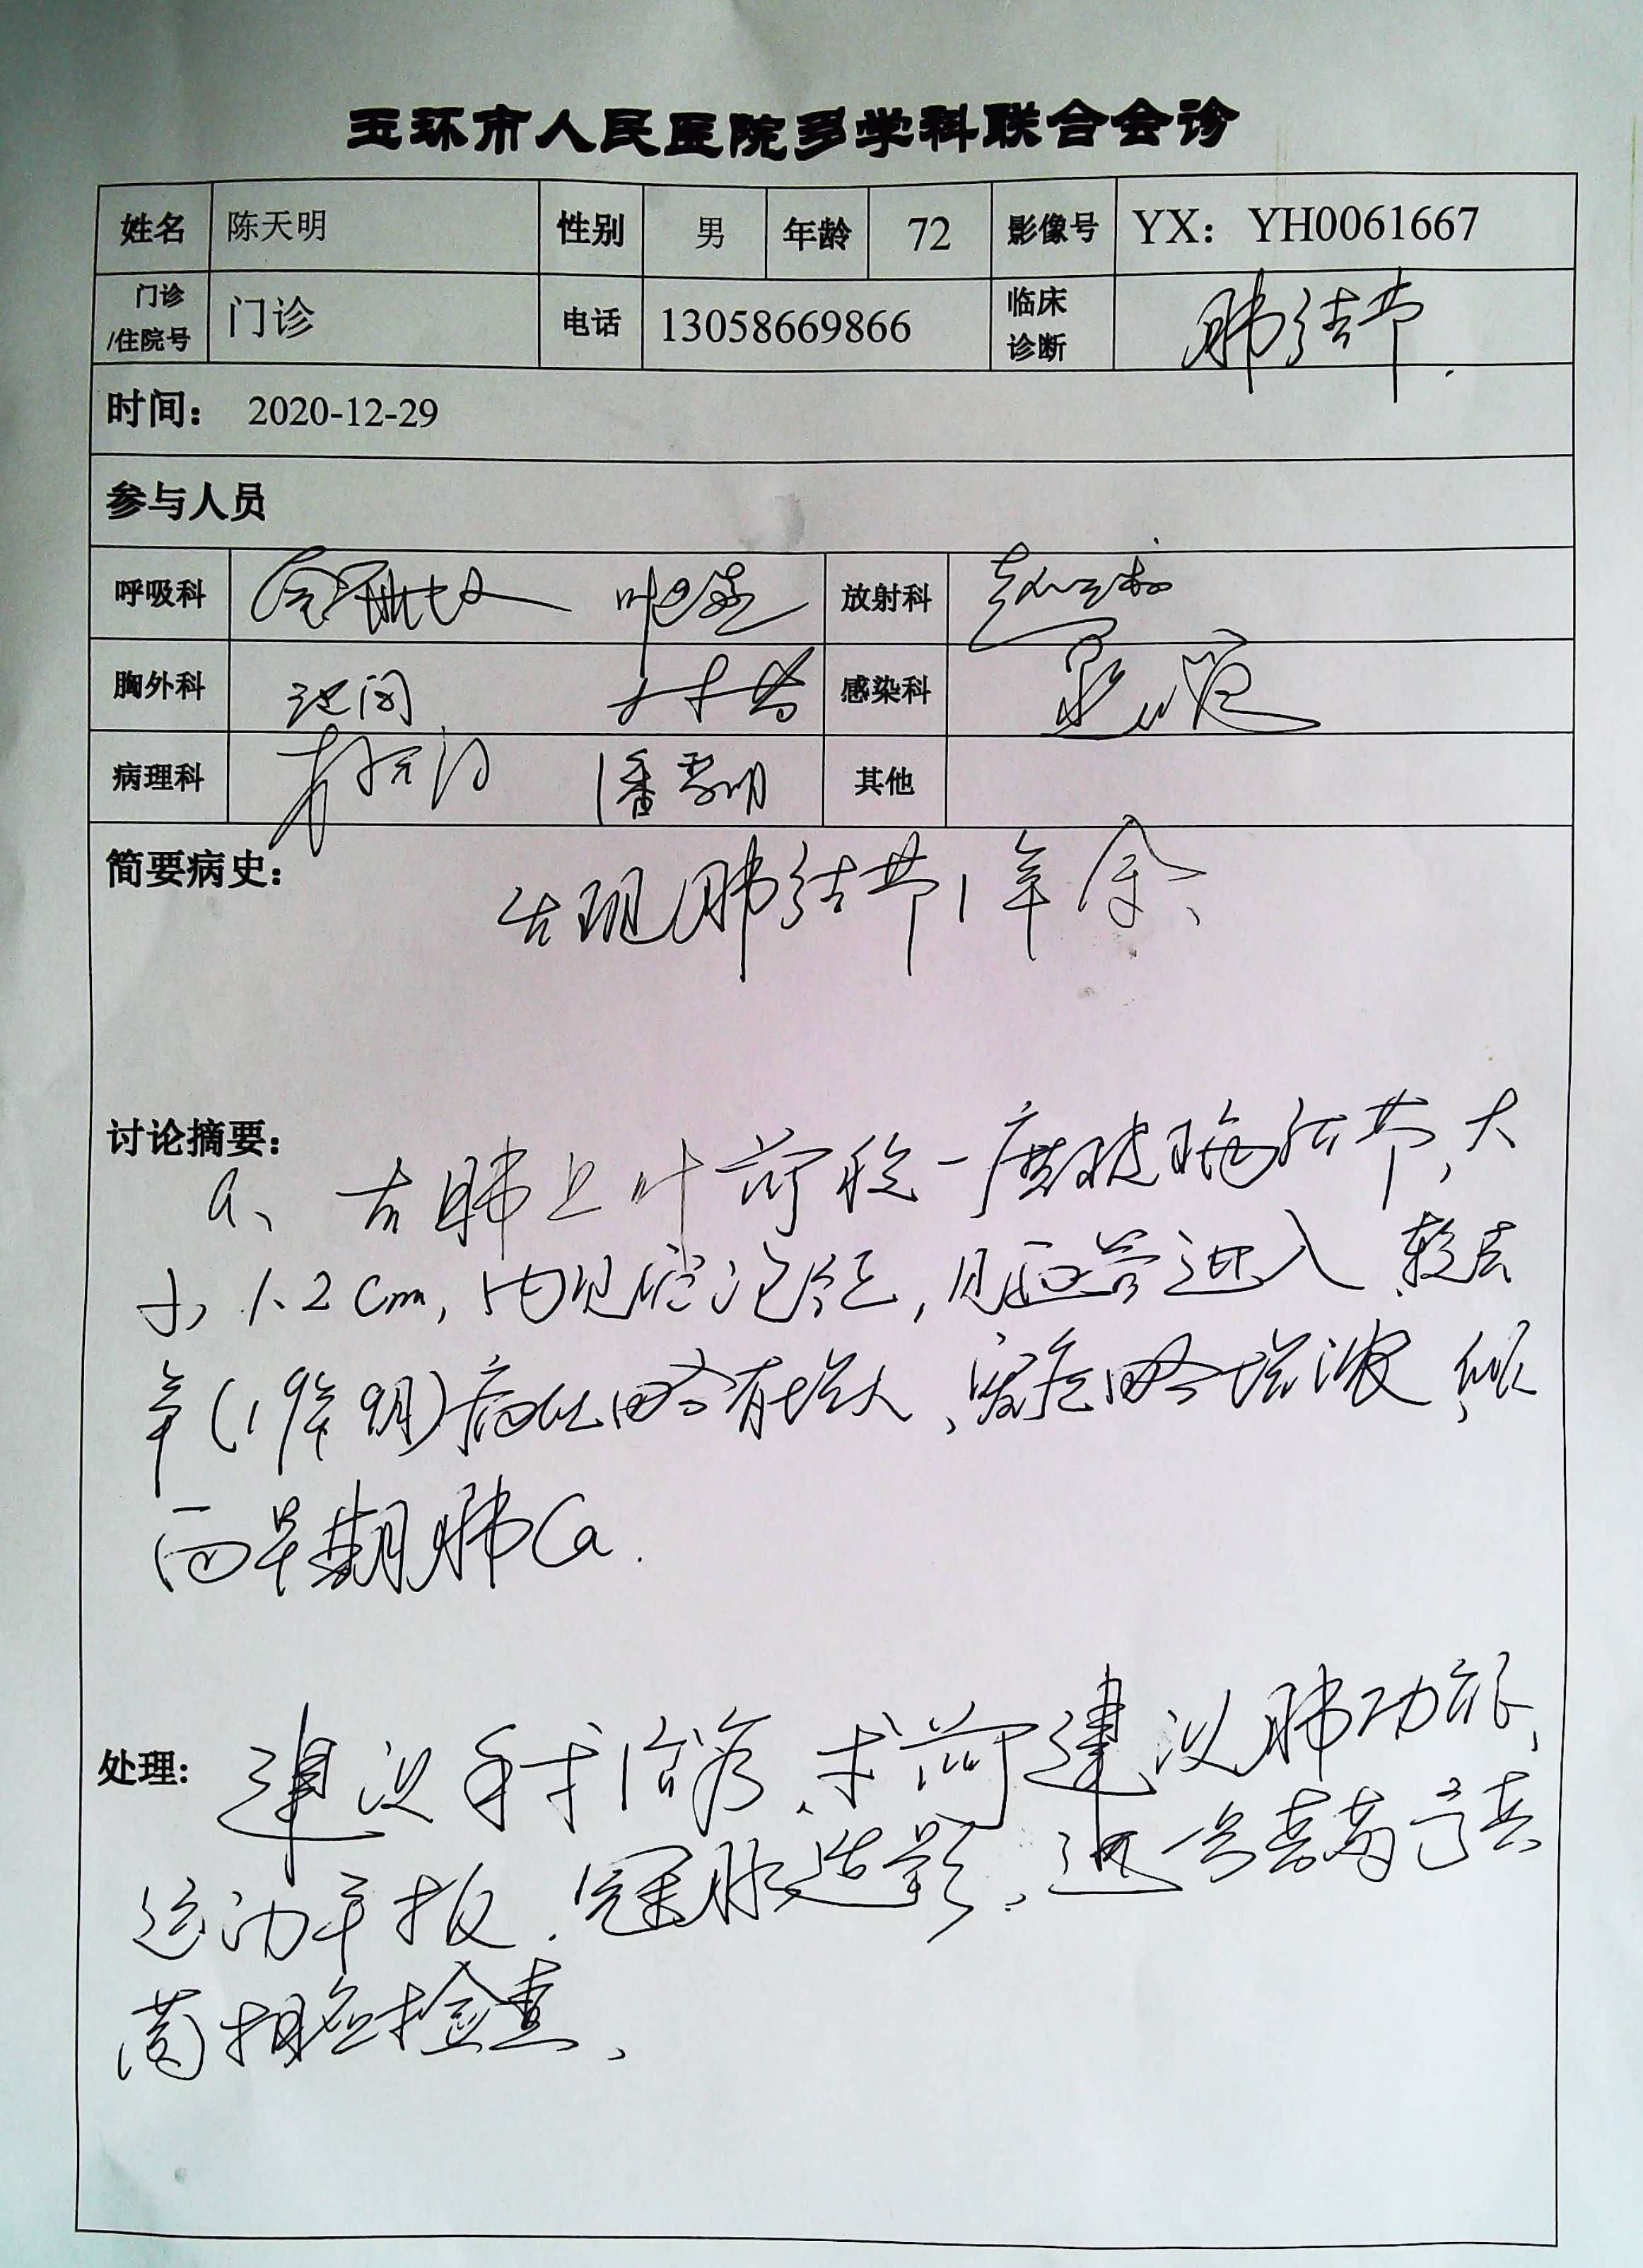 玉环市人民医院多学科联合会诊
姓名 陈天明 性别 男 年龄 72 影像号 YX： YH0061667
门诊/住院号 门诊 电话 13058669866 临床诊断 肺结节.
时间： 2020-12-29
参与人员
呼吸科 放射科
胸外科 感染科
病理科 潘黎明 其他
简要病史： 发现肺结节1年余、
讨论摘要：
肺上叶前段一磨玻璃结节，大
小1.2cm，内见空泡征，见血管进入，较去
年（19年9月）病灶略有增大，密度略增浓，倾
向早期肺Ca.
处理： 建议手术治疗、术前建议肺功能、
运动平板.冠脉造影、进一步
菌相应检查、